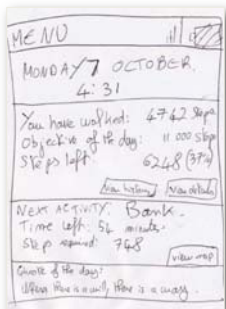 MENU
MONDAY 7 OCTOBER.
4:31
You have walked: 4742 steps
Objective of the day: 11 000 steps
Steps left: 6248 (37%)
view history view details
NEXT ACTIVITY: Bank.
Time left: 54 minutes.
Steps required: 748
view map
Quote of the day:
Where there is a will, there is a way.